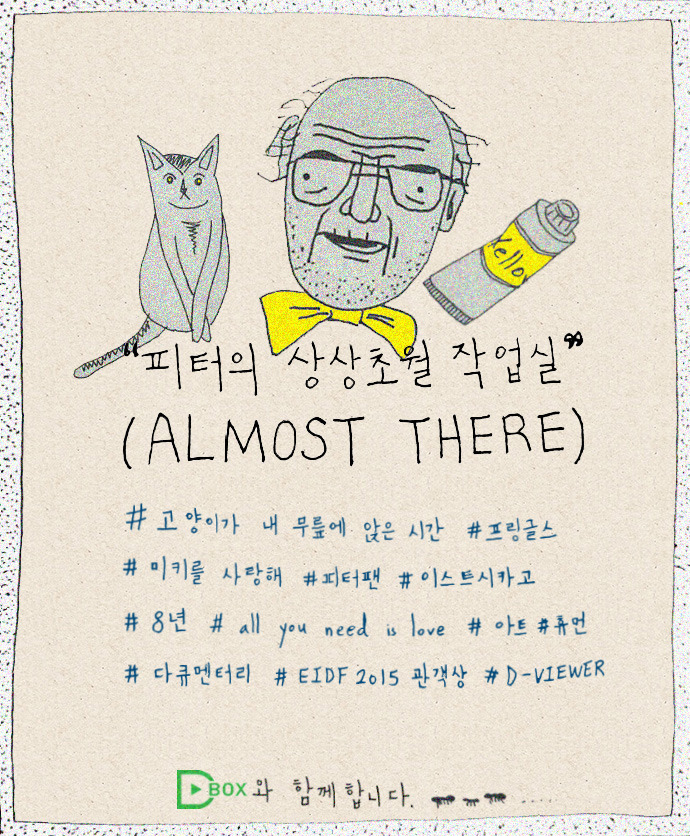 Yello
"피터의 상상초월 작업실"
(ALMOST THERE)
# 고양이가 내 무릎에 앉은 시간 #프링글스
# 미키를 사랑해 #피터팬 #이스트시카고
# 8년 # all you need is love # 아트 #휴먼
# 다큐멘터리 # EIDF 2015 관객상 # D-VIEWER
D BOX와 함께합니다.